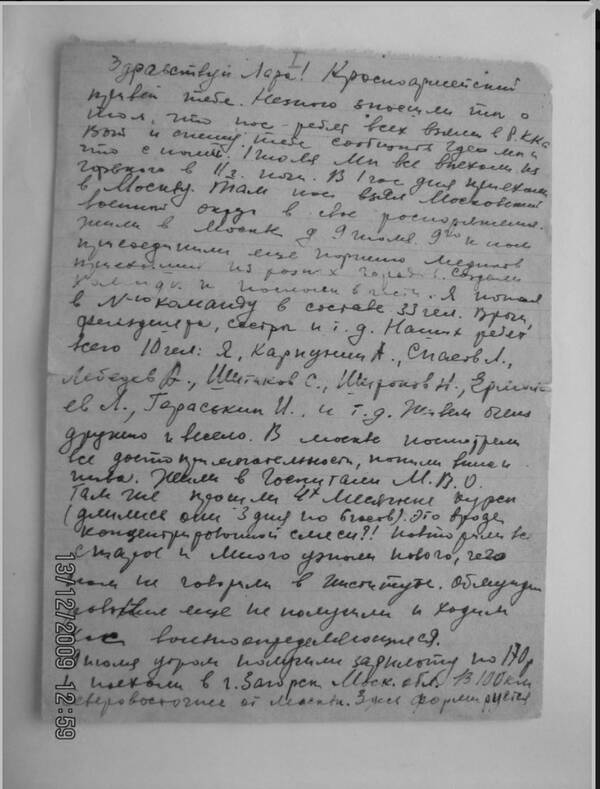 I
Здравствуй Лара! Красноармейский
привет тебе. Немного вносили ты о
том, что нас-ребят всех взяли в Р.К.К.А
Вот и спешу тебе сообщить где мы и
что с нами. 1 июля мы все выехали из
Горького в 11 ч. ночи. В 1 час дня приехали
в Москву. Там нас взял Московский
военный округ в свое распоряжение.
Жили в Москве д 9 июля. 9го к нам
присоединили еще партию медиков
приехавших из разных городов. Создали
команды и послали в части. Я попал
в N-ю команду в составе 33 чел. Врачи,
фельдшера, сестры и т.д. Наших ребят
всего 10 чел: Я, Карпунин А., Спасов Л.,
Лебедев А., Шитиков С., Широков Н.,
ев Л., Гераськин И., и т.д. Живем очень
дружно и весело. В Москве посмотрели
все достопримечательности, попили вина и
пива. Жили в Госпитале М.В.О.
Там же прошли 4х месячные курсы
(длились они 3 дня по 6 часов). Это вроде
концентрированной смеси?! Повторили все
старое и много узнали нового, чего
нам не говорили в институте. Обмунди
рования еще не получили и ходим
как военноопределяющиеся.
июля утром получили зарплату по 170р
и поехали в г. Загорск Моск. обл. В 100 км
северовосточнее от Москвы. Здесь формируется
13/12/2009 12:59